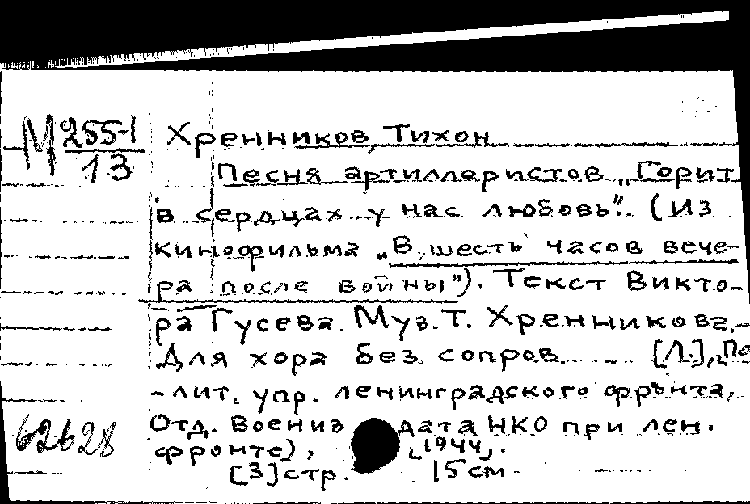 М 255-1
13
Хренников, Тихон
Песня артиллеристов „Горит
в сердцах у нас любовь". (Из
кинофильма „В шесть часов вече-
ра после войны"). Текст Викто-
ра Гусева. Муз. Т. Хренникова.
Для хора без сопров. [Л.], По
лит. упр. Ленинградского фронта,
Отд. Воениз дата НКО при лен.
фронте), [1944].
[3] стр. 15 см.
62628